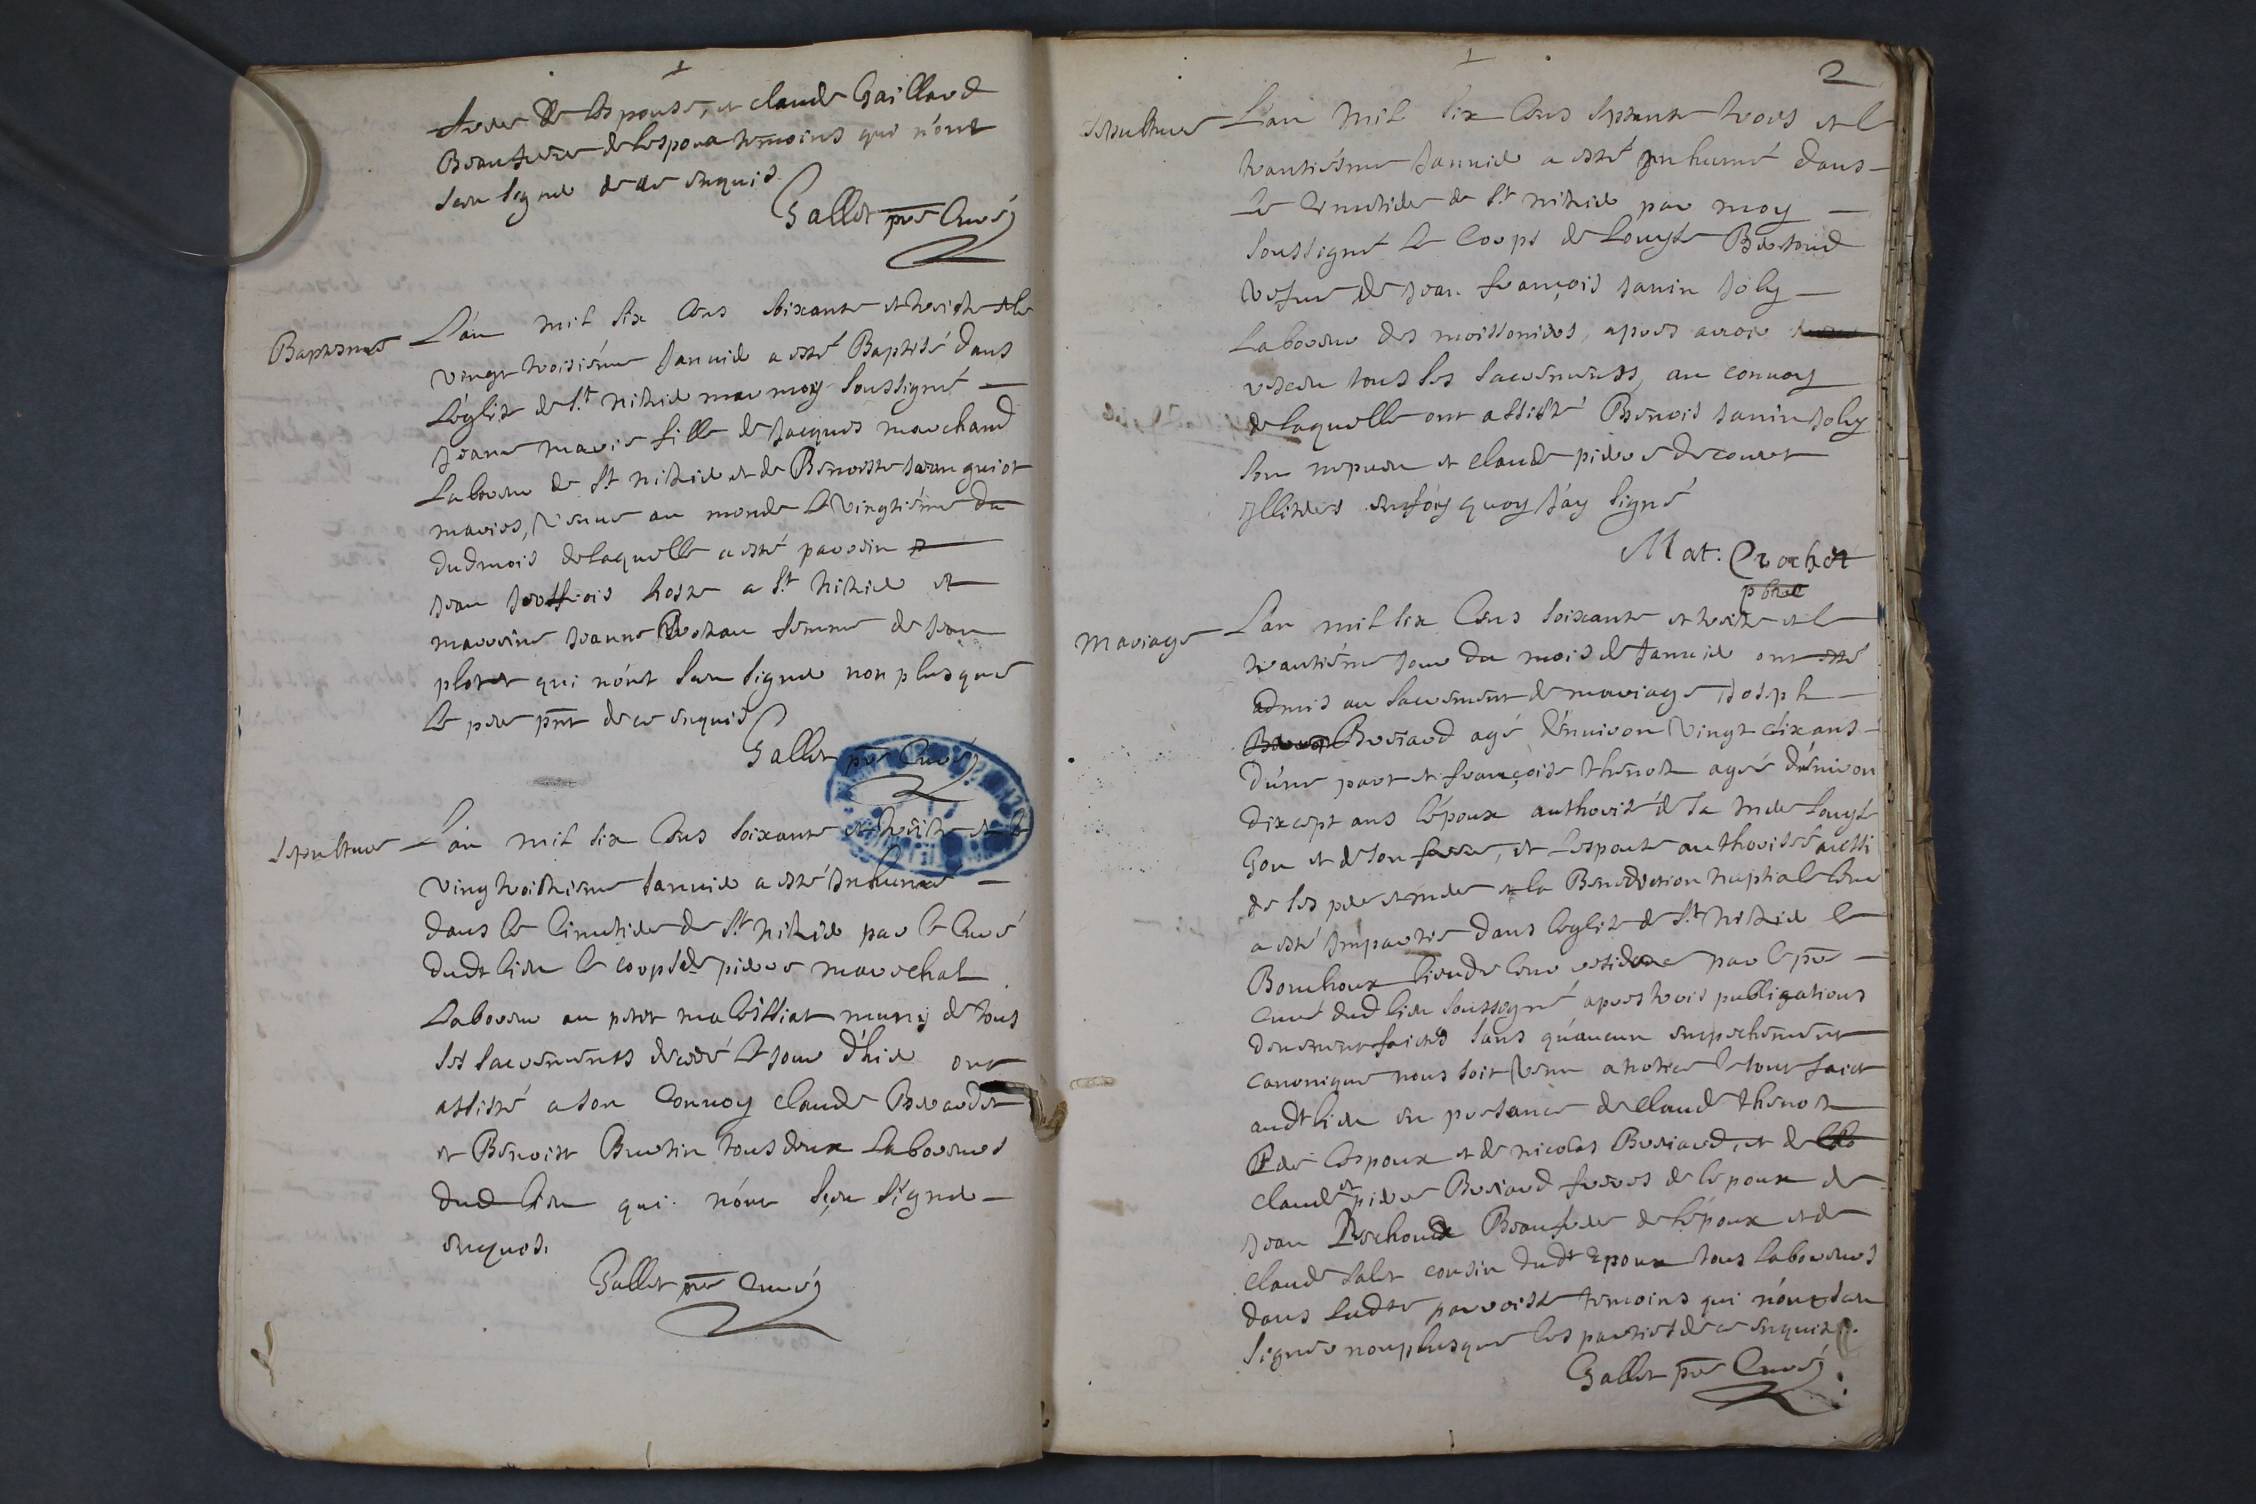 frere de lespouse, et claude Gaillard
Beaufrere de lespoux temoins qui n'ont
sceu signer de ce enquis
Gallet pre Curé
Baptesme
L'an mil six Cens soixante et treize et le
vingt troisiéme Januier a esté Baptisé dans
L'église de St nithier par moy soussigné
Jeanne marie fille de Jacques marchand
Laboureur de St nithier et de Benoiste Jeanguiot
mariés, venue au monde le vingtiéme du
dud mois de laquelle a esté parrein
Jean hoste a St nithier et
marreine Jeanne femme de Jean
plotet qui n'ont sceu signer non plus que
le pere pnt de ce enquis
Gallet pre Curé
Sepulture
L'an mil six Cens soixante et treize et le
vingtroisiéme Januier a esté Inhumé
dans le Cimetiere de St nithier par le Curé
dudt lieu le corps de pierre mareschal
Laboureur au petit malessiat muny de tous
ses sacrements decedé le jour d'hier ont
assisté a son Conuoy claude Beraudet
et Benoist Buretin tous deux Laboureurs
dud lieu qui n'ont sçeu signer
enquis.
Gallet pre Curé
2
Sepulture
L'an mil six Cens septante trois et le
trantiésme Januier a esté jnhumé dans
le Cemetiere de St nithier par moy
soussigné le Corps de Louyse Bertoud
vefue de Jean françois Janin Joly
Laboureur des moissonieres, apres auoir
receu tous ses sacrements, au conuoy
de laquelle ont assisté Benois Janin Joly
son nepueu et claude pierre decouret
Illiteres en foy quoy j'ay signé
Mat: Crochet
pbre
Mariage
L'an mil six Cens soixante et treize et le
trantiéme jour du mois de Januier ont esté
admis au sacrement de mariage Joseph
Buriaud agé d'enuiron vingt dix ans
d'une part et françoise thenot agée d'enuiron
dixcept ans l'époux authorisé de sa mere Louyse
Gon et de son frere, et l'espouse authorisée aussi
de ses pere et mere et la Benediction nuptiale leur
a esté Impartie dans l'eglise de St nithier le
Bouchoux lieu de leur residence par le pre
Curé dud lieu soussigné apres trois publigations
deuement faictes sans qu'aucun empechement
canonique nous soit venu a notice le tout faict
audt lieu en presance de claude thenot
Pere lespoux et de nicolas Buriaud, et de
claude et pierre Buriaud freres de lépoux de
Jean Beaufrere de l'époux et de
claude Salet cousin dudt Epoux tous laboureurs
dans ladte parroisse temoins qui n'ont sceu
signer nonplusque les parties de ce enquis
Gallet pre Curé